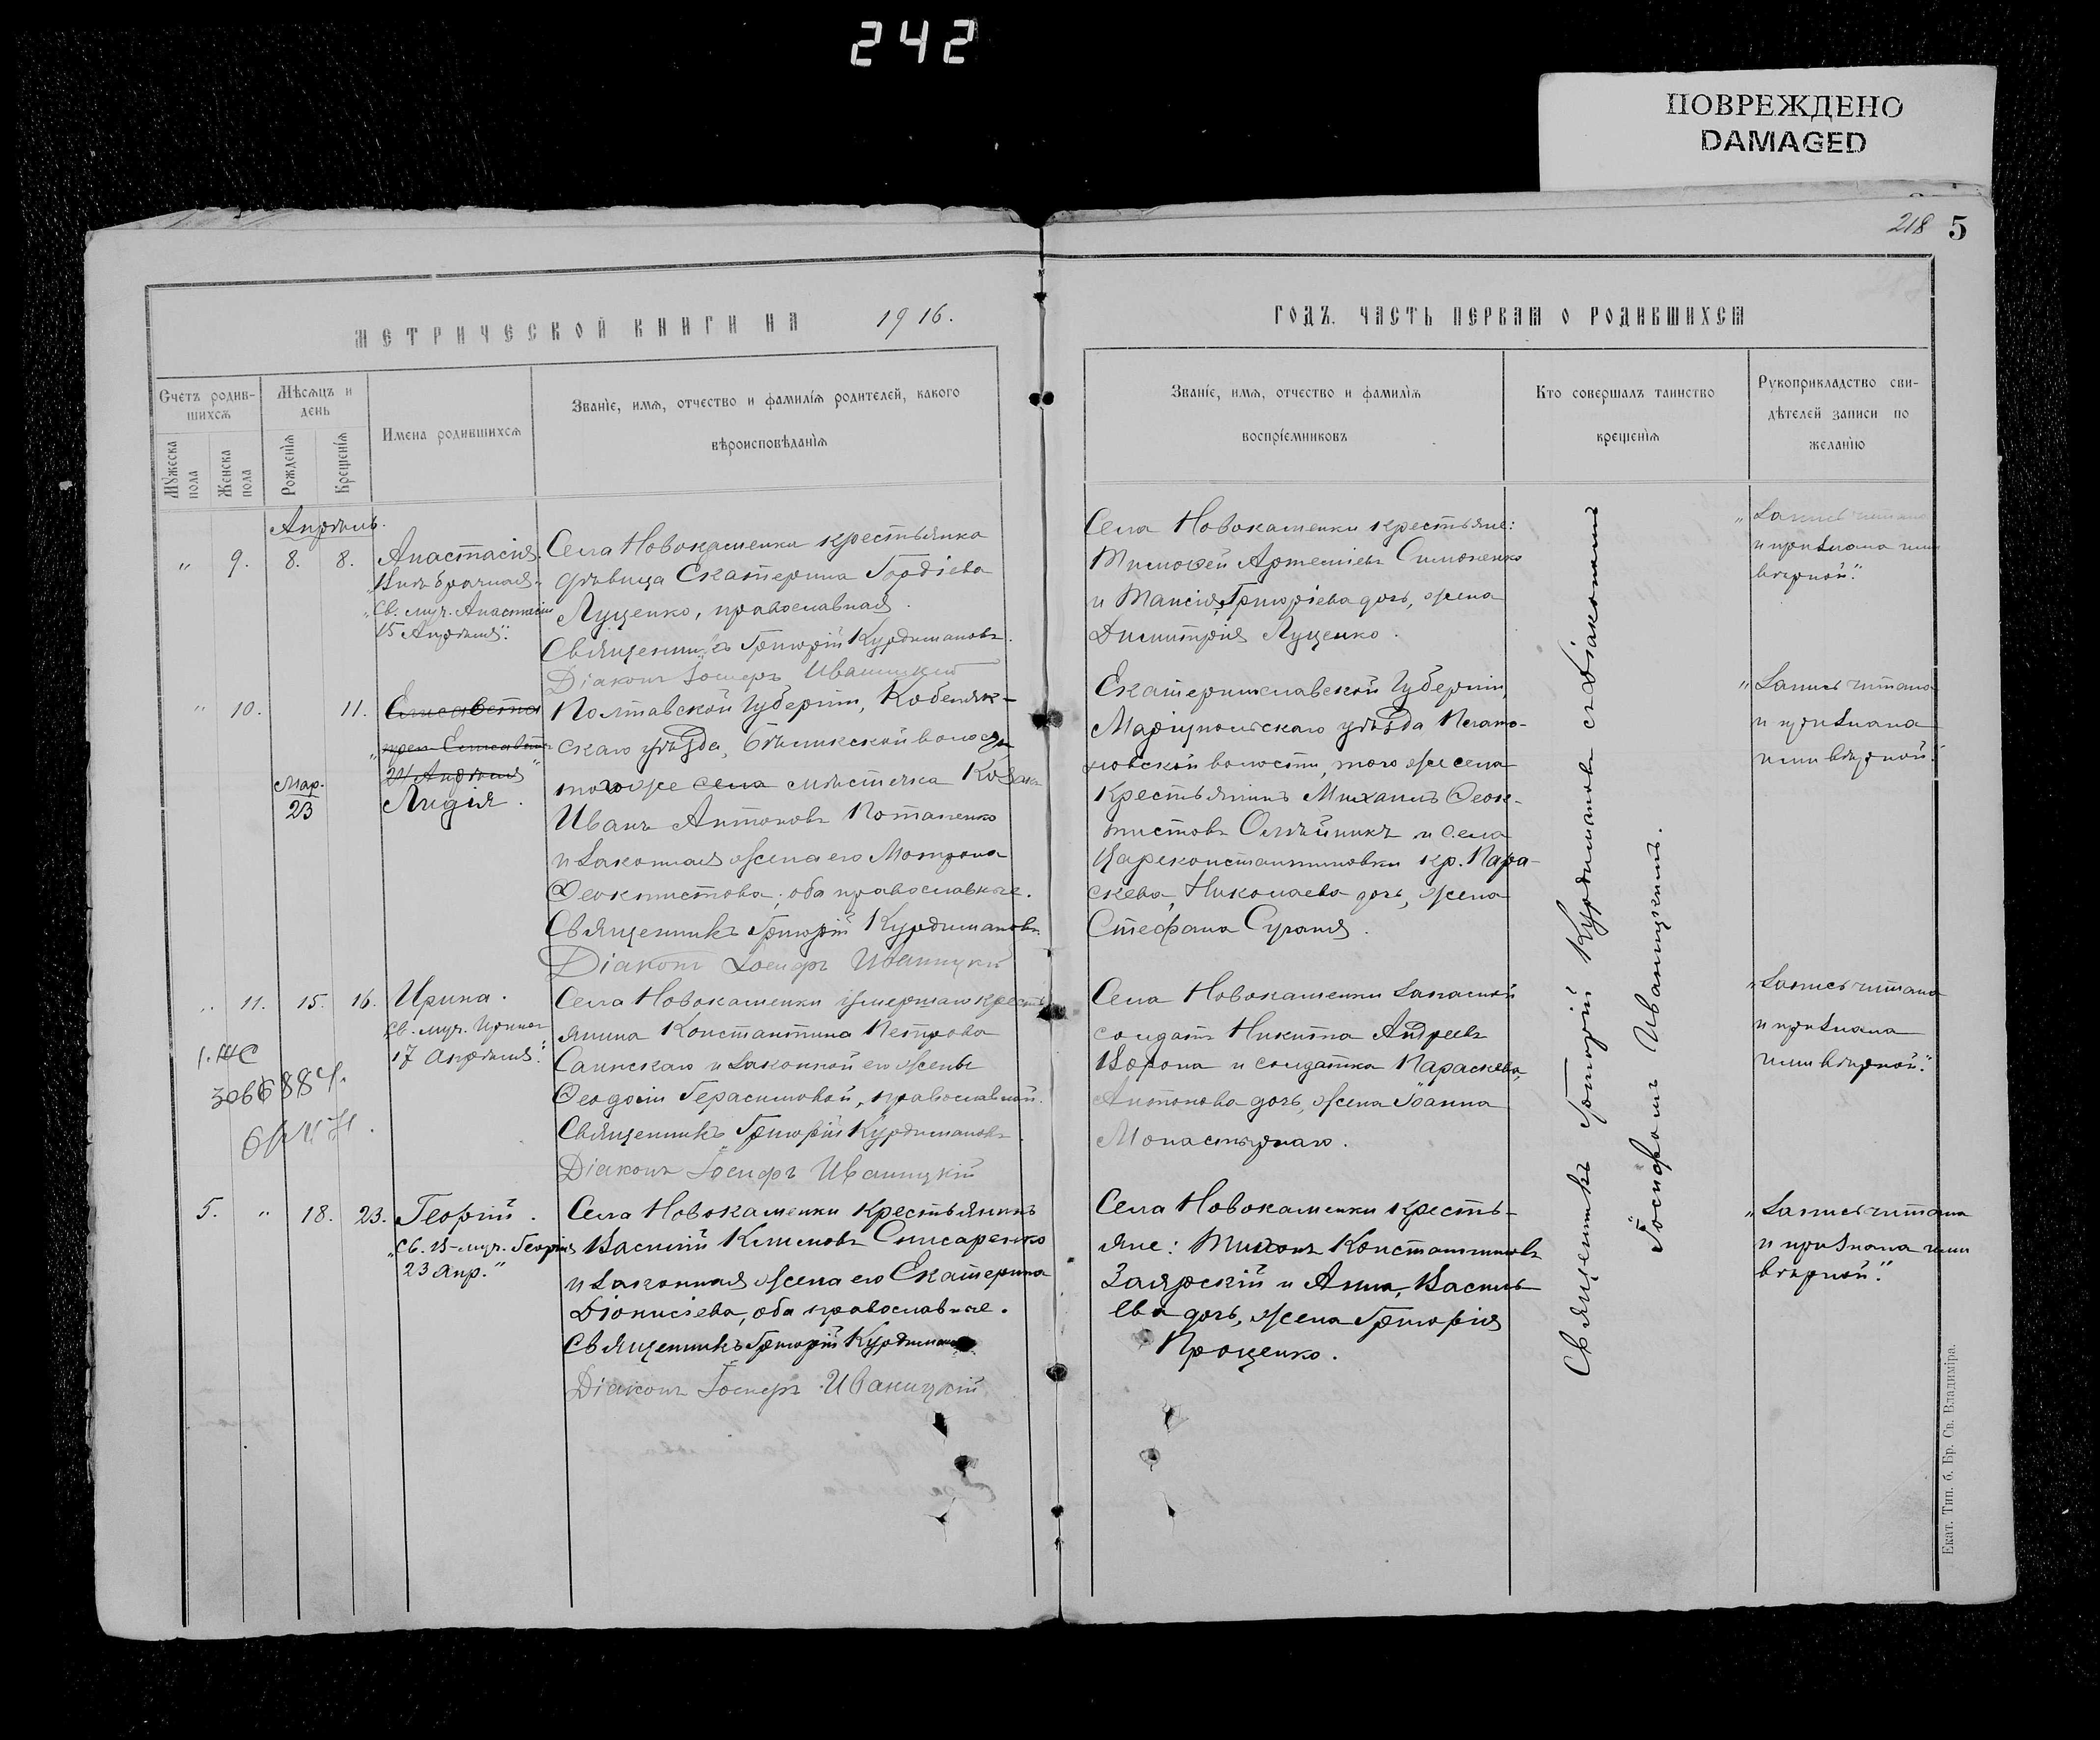 242
ПОВРЕЖДЕНО
DAMAGED
218 5
МЕТРИЧЕСКОЙ КНИГИ НА 1916.
ГОДЪ. ЧАСТЬ ПЕРВАЯ О РОДИВШИХСЯ
Счетъ родив-
шихся
Мужеска
пола
Женска
пола
Мѣсяцъ и
день
Рожденія
Крещенія
Имена родившихся
Званіе, имя, отчество и фамилія родителей, какого
вѣроисповѣданія
Званіе, имя, отчество и фамилія
воспріемниковъ
Кто совершалъ таинство
крещенія
Рукоприкладство сви-
дѣтелей записи по
желанію
Апрѣль.
" 9. 8. 8.
Анастасія.
Внѣбрачная.
"Св. муч. Анастасіи
15 Апрѣля".
Села Новокаменки крестьянка
дѣвица Екатерина Гордіева
Луценко, православная.
Священникъ Григорій Курдимановъ.
Діаконъ Іосифъ Иваницкій
Села Новокаменки крестьяне:
Тимофей Артеміевъ Симоненко
и Таисія Григоріева дочь, жена
Димитрія Луценко.
"Запись читана
и признана ими
вѣрной".
" 10. 11.
Мар.
23
Елисавета
преп. Елисаветы
24 Апрѣля"
Лидія.
Полтавской губерніи, Кобеляк-
скаго уѣзда, Бѣликской волости
того же села мѣстечка
Иванъ Антоновъ Потапенко
и законная жена его Мотрона
Феоктистова; оба православные.
Священникъ Григорій Курдимановъ.
Діаконъ Іосифъ Иваницкій
Екатеринославской губерніи,
Маріупольскаго уѣзда
волости, того же села
крестьянинъ Михаилъ Феок-
тистовъ Олѣйникъ и села
Цареконстантиновки кр. Пара-
скева, Николаева дочь, жена
Стефана
"Запись читана
и признана
ими вѣрной".
" 11. 15. 16.
Ирина.
Св. муч. Ирины
17 Апрѣля".
Села Новокаменки умершаго кресть
янина Константина Петрова
и законной его жены
Феодосіи Герасимовой, православной.
Священникъ Григорій Курдимановъ.
Діаконъ Іосифъ Иваницкій
Села Новокаменки запасной
солдатъ Никита Андреевъ
Ворона и солдатка Параскева,
Антонова дочь, жена Іоанна
Монастырнаго.
"Запись читана
и признана
ими вѣрной".
5. " 18. 23.
Георгій.
"Св. в-муч. Георгія
23 Апр."
Села Новокаменки крестьянинъ
Василій Климовъ Слисаренко
и законная жена его Екатерина
Діонисіева, оба православные.
Священникъ Григорій Курдимановъ
Діаконъ Іосифъ Иваницкій
Села Новокаменки кресть-
яне: Тихонъ Константиновъ
Заярскій и Анна, Василь
ева дочь, жена Григорія
Проценко.
"Запись читана
и признана ими
вѣрной".
Священникъ Григорій Курдимановъ съ Діакономъ
Іосифомъ Иваницкимъ.
Екат. Тип. б. Бр. Св. Владиміра.